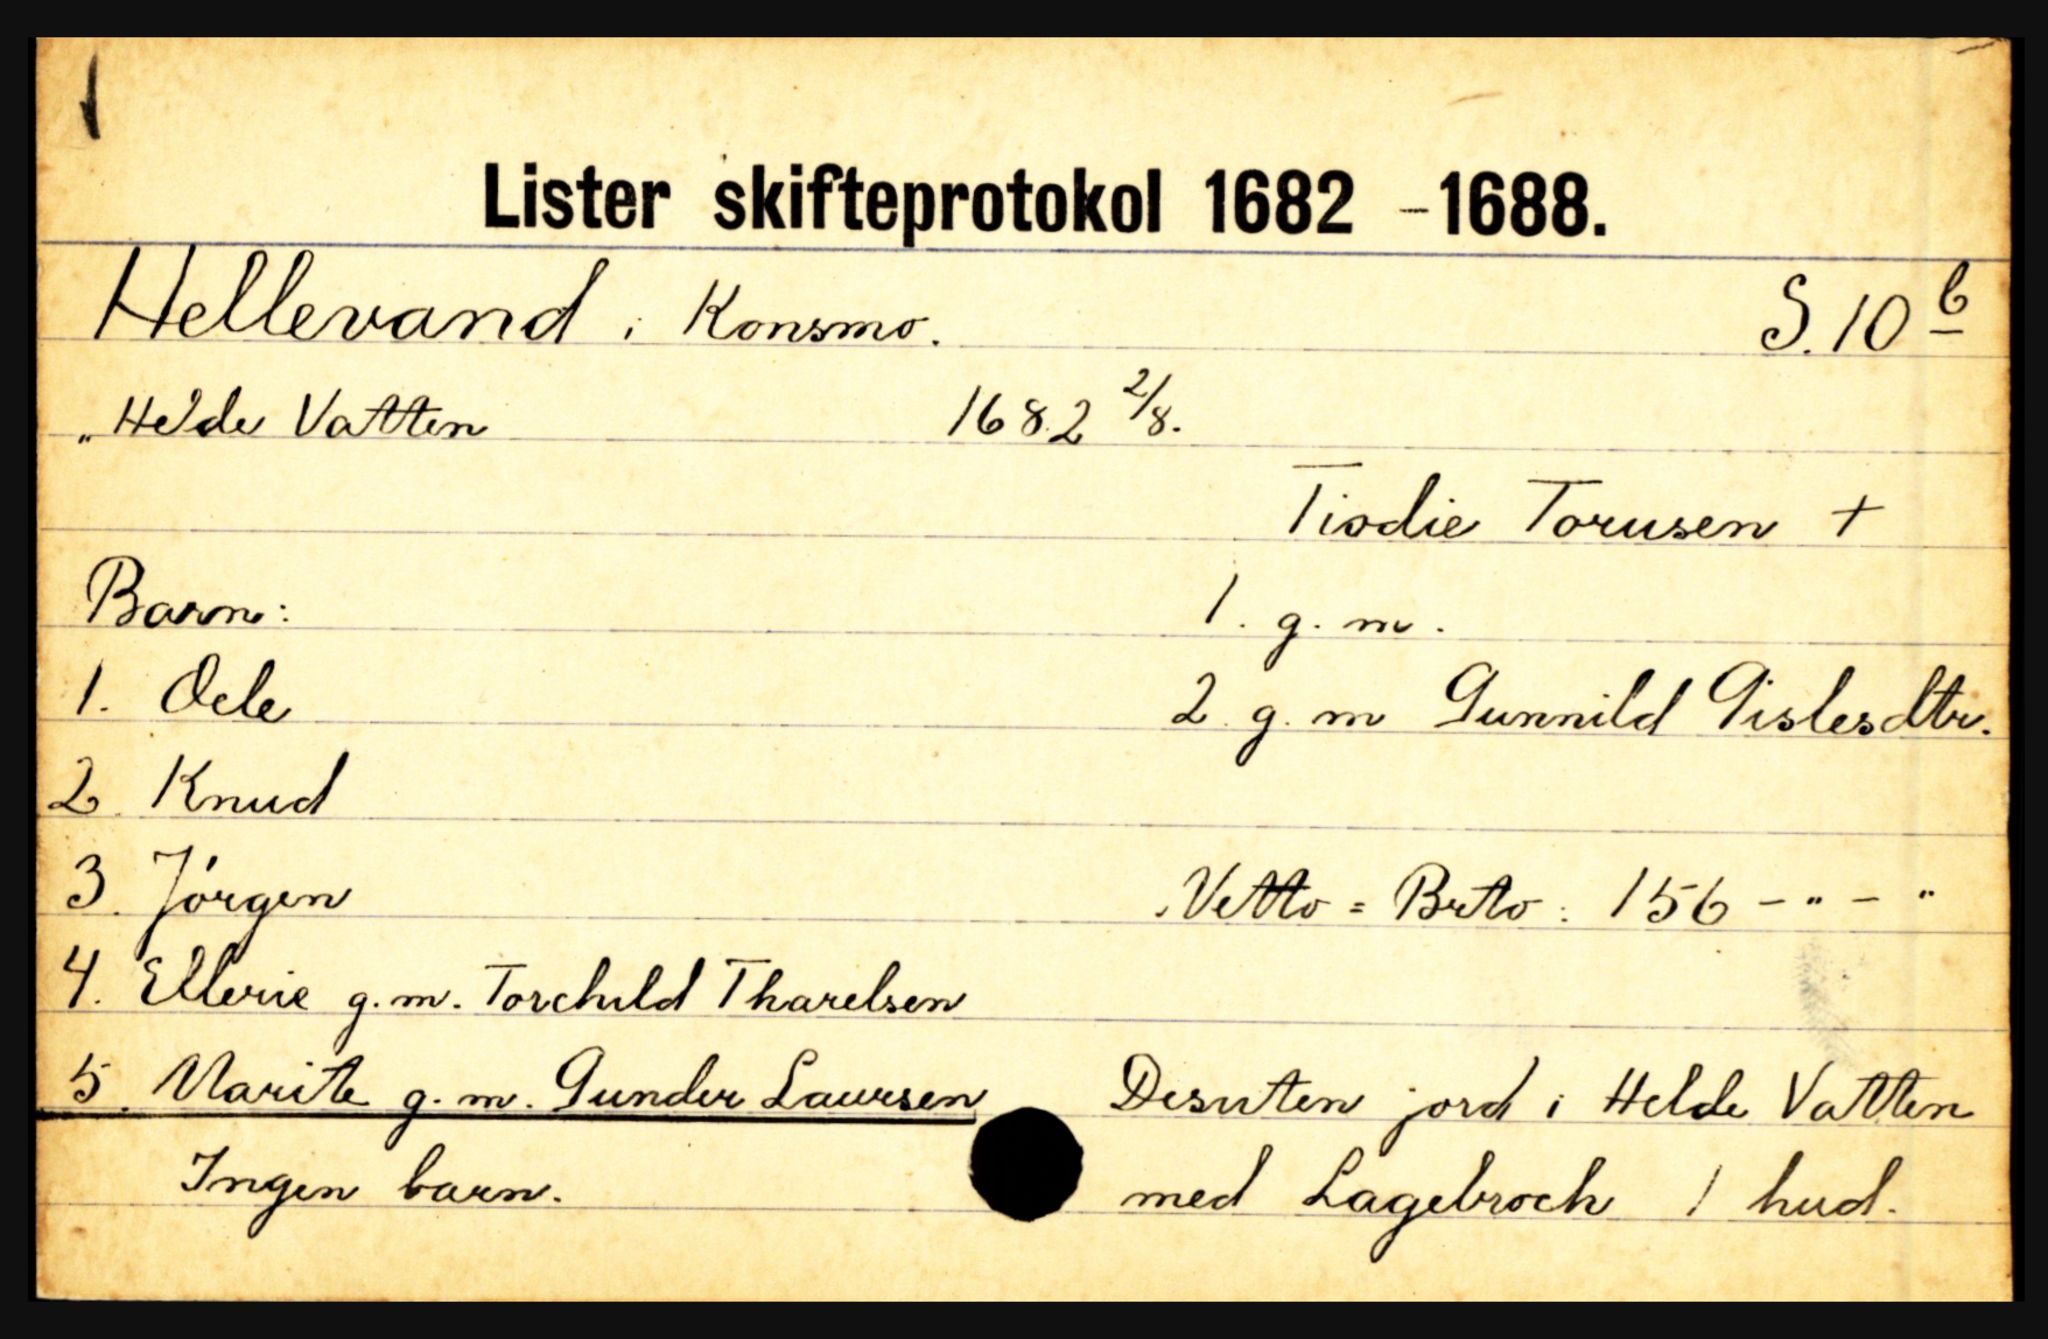 Lister skifteprotokol 1682 - 1688.
Hellevand i Konsmo. S. 10 b
„ Helde Vatten 1682 2/8.
Tiodie Torusen +
Barn: 1. g. m.
1. Oele 2. g. m Gunnild Gislesdtr.
2. Knud
3. Jörgen Netto = Brto: 156 - " - "
4. Ellerie g. m. Torchild Tharelsen
5. Marite g. m. Gunder Laursen
Ingen barn.
Desuten jord i Helde Vatten
med Lagebroch 1 hud.